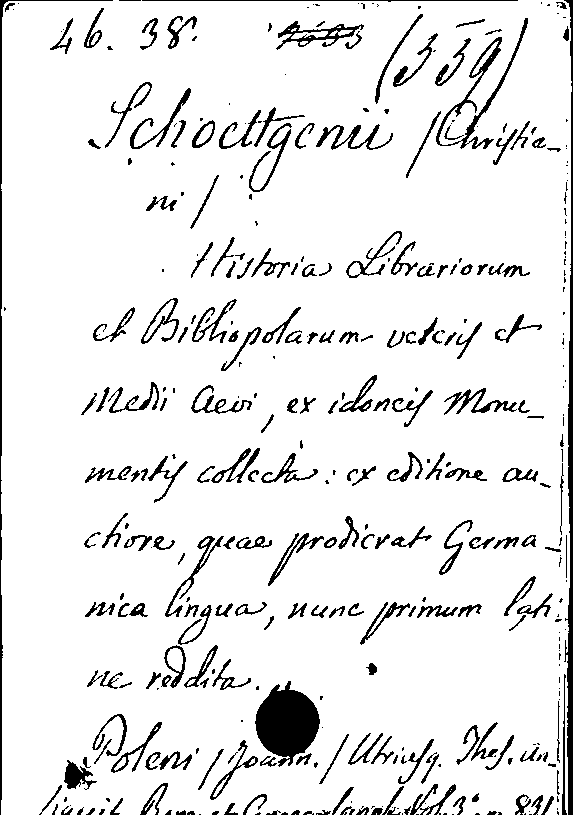 46. 38. (339)
Schoettgenii /Christia-
ni /
Historia Librariorum
et Bibliopolarum veteris et
Medii Aevi, ex idoneis Monu-
mentis collecta: ex editione au-
ctiore, quae prodierat Germa-
nica lingua, nunc primum lati-
ne reddita.
Poleni /Joann./ Utriusq. Thes. An-
tiquit. Rom. et Vol. 3° p. 831